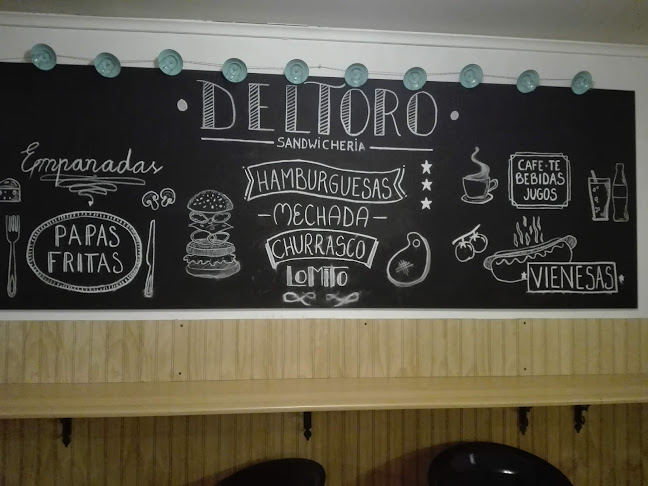 DELTORO
SANDWICHERÍA
Empanadas
PAPAS
FRITAS
HAMBURGUESAS
-MECHADA-
CHURRASCO
LOMITO
CAFE·TE
BEBIDAS
JUGOS
VIENESAS